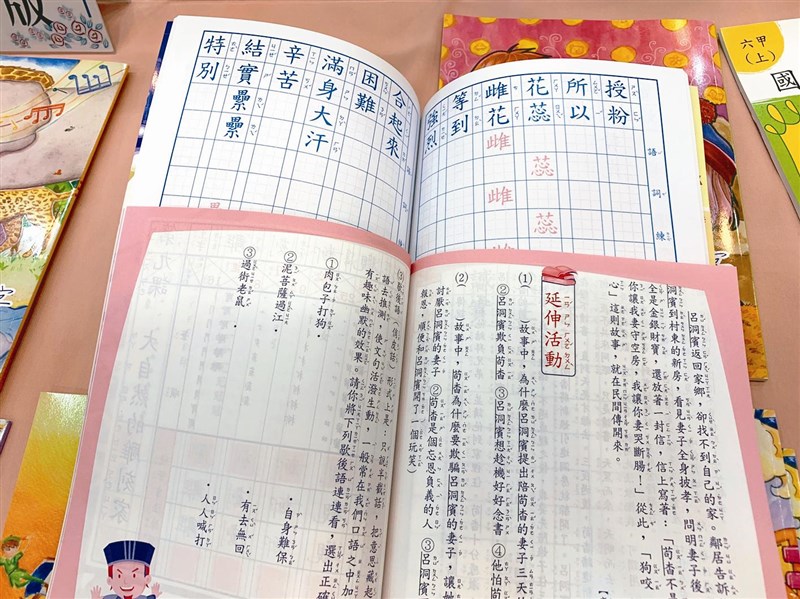 版
六甲
(上)
國
授粉
所以
花蕊
雌花
等到
強烈
蕊
雌
蕊
雌
蕊
雌
語詞練
合起來
困難
滿身大汗
辛苦
結實纍纍
特別
呂洞賓返回家鄉,卻找不到自己的家。鄰居告訴
洞賓到村東的新房,看見妻子全身披孝,問明妻子後
全是金銀財寶,還放著一封信,信上寫著:「苟杳不是
你讓我妻守空房,我讓你妻哭斷腸!」從此,「狗咬
心」這則故事,就在民間傳開來。
延伸活動
(1)故事中,為什麼呂洞賓提出陪苟杳的妻子三天
②呂洞賓欺負苟杳 ③呂洞賓想趁機好好念書 ④他怕苟
(2)故事中,苟杳為什麼要欺騙呂洞賓的妻子,讓她
討厭呂洞賓的妻子 ②苟杳是個忘恩負義的人 ③呂洞賓
報恩,順便和呂洞賓開了一個玩笑
(3)歇後語(俏皮話)形式上是:只說半截話,把意思藏起
語去推測,使文句活潑生動,一般常在我們口語之中加
有趣味幽默的效果。請你將下列歇後語連連看,選出正確
①肉包子打狗・
②泥菩薩過江・
③過街老鼠・
・自身難保
・有去無回
・人人喊打